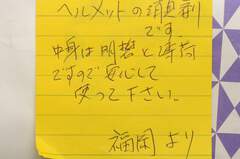 ヘルメットの消臭剤
です
中身は明礬と薄荷
ですので安心して
使って下さい。
福岡より